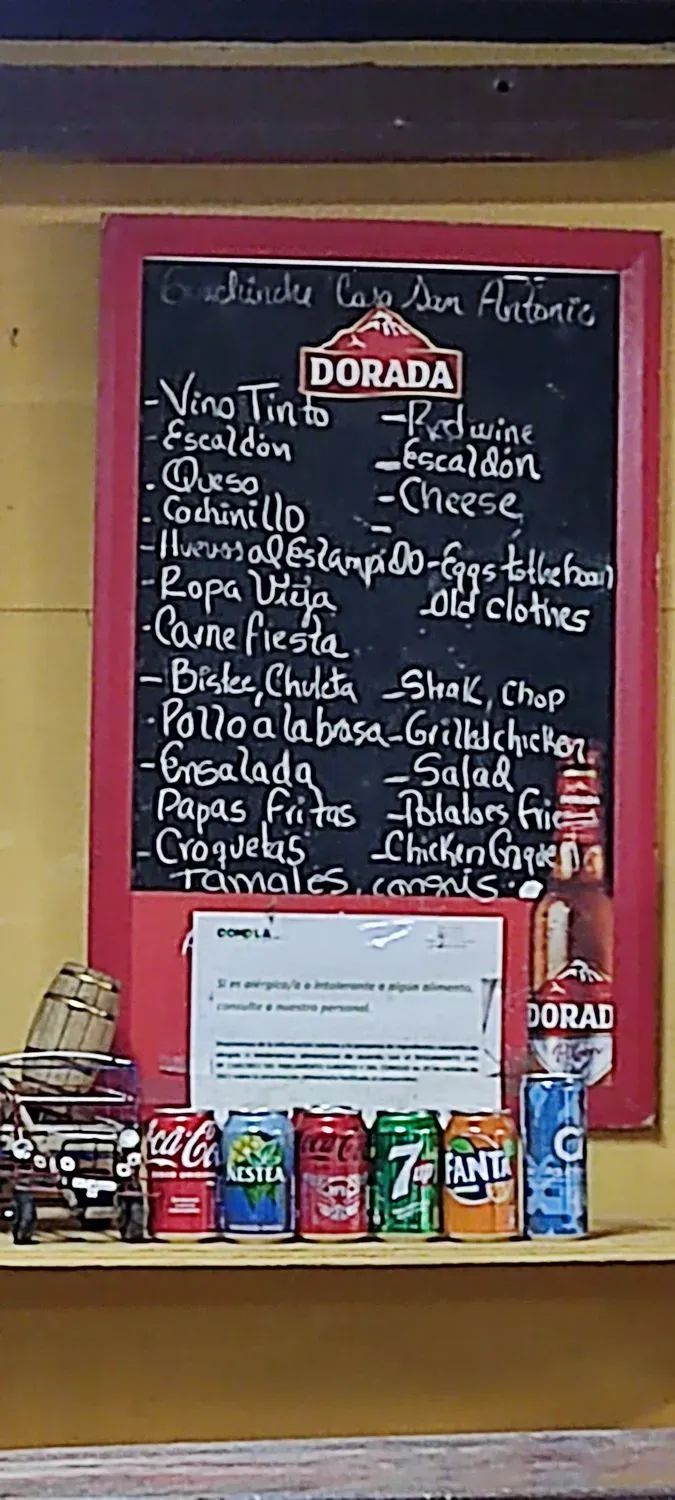 Guachinche Casa San Antonio
DORADA
- Vino Tinto - Red wine
- Escaldón - Escaldón
- Queso - Cheese
- Cochinillo -
- Huevos al Estampido - Eggs to the boom
- Ropa Vieja - Old clothes
- Carne fiesta
- Bistec, Chuleta - Steak, Chop
- Pollo a la brasa - Grilled chicken
- Ensalada - Salad
Papas Fritas - Potatoes Frie
- Croquetas - Chicken Croquet
Tamales, congris.
Si es alérgico/a o intolerante a algun alimento,
consulte a nuestro personal.
DORADA
DORAD
Coca-Co
NESTEA
Coca-Co
7up
FANTA